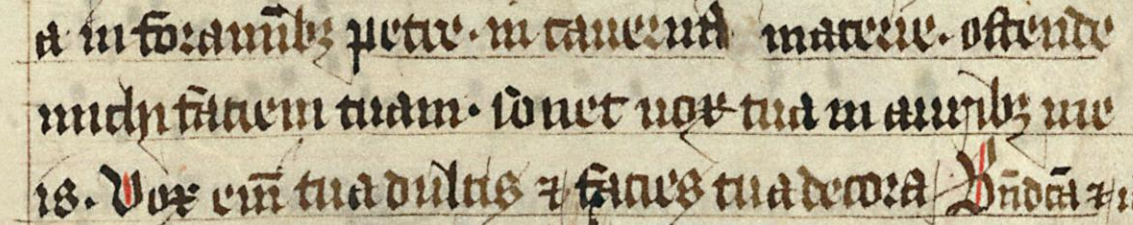 a in foramībꝫ petre · in cauerna macerie · ostende
michi faciem tuam · sonet uox tua in auribꝫ me
is. Vox enī tua dulcis ⁊ facies tua decora Bn̄dcā ⁊